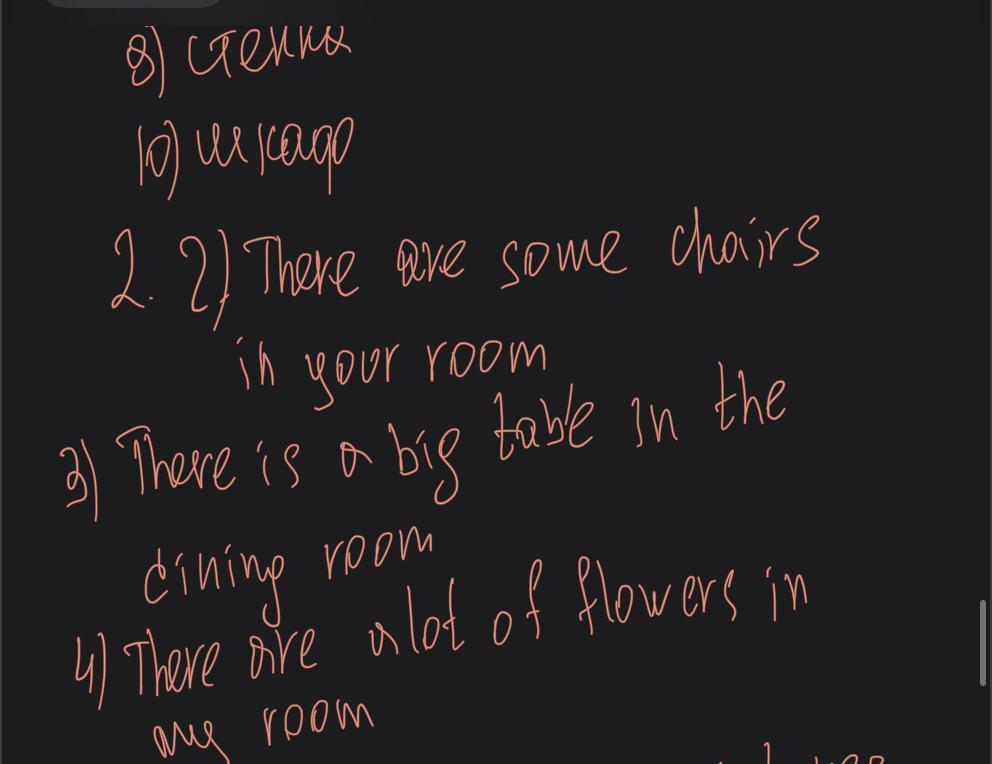 8) стенка
10) шкаф
2. 2) There are some chairs
in your room
3) There is a big table in the
dining room
4) There are a lot of flowers in
my room